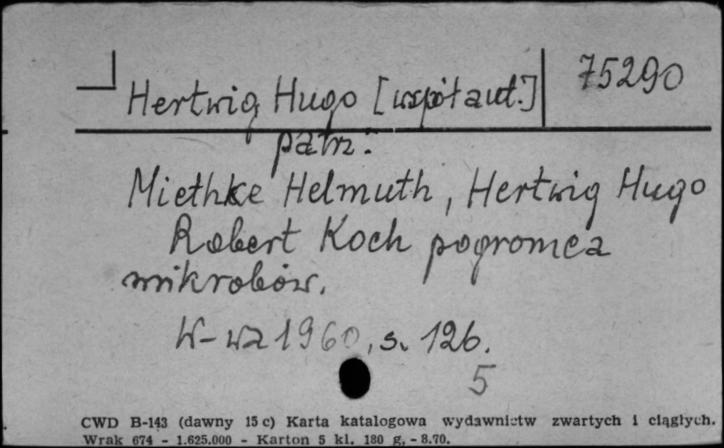 Hertwig Hugo [współaut.] 75290
patrz:
Miethke Helmuth, Hertwig Hugo
Robert Koch pogromca
mikrobów.
W-wa 1960, s. 126.
5
CWD B-143 (dawny 15 c) Karta katalogowa wydawnictw zwartych i ciągłych.
Wrak 674 - 1.625.000 - Karton 5 kl. 180 g. - 8.70.